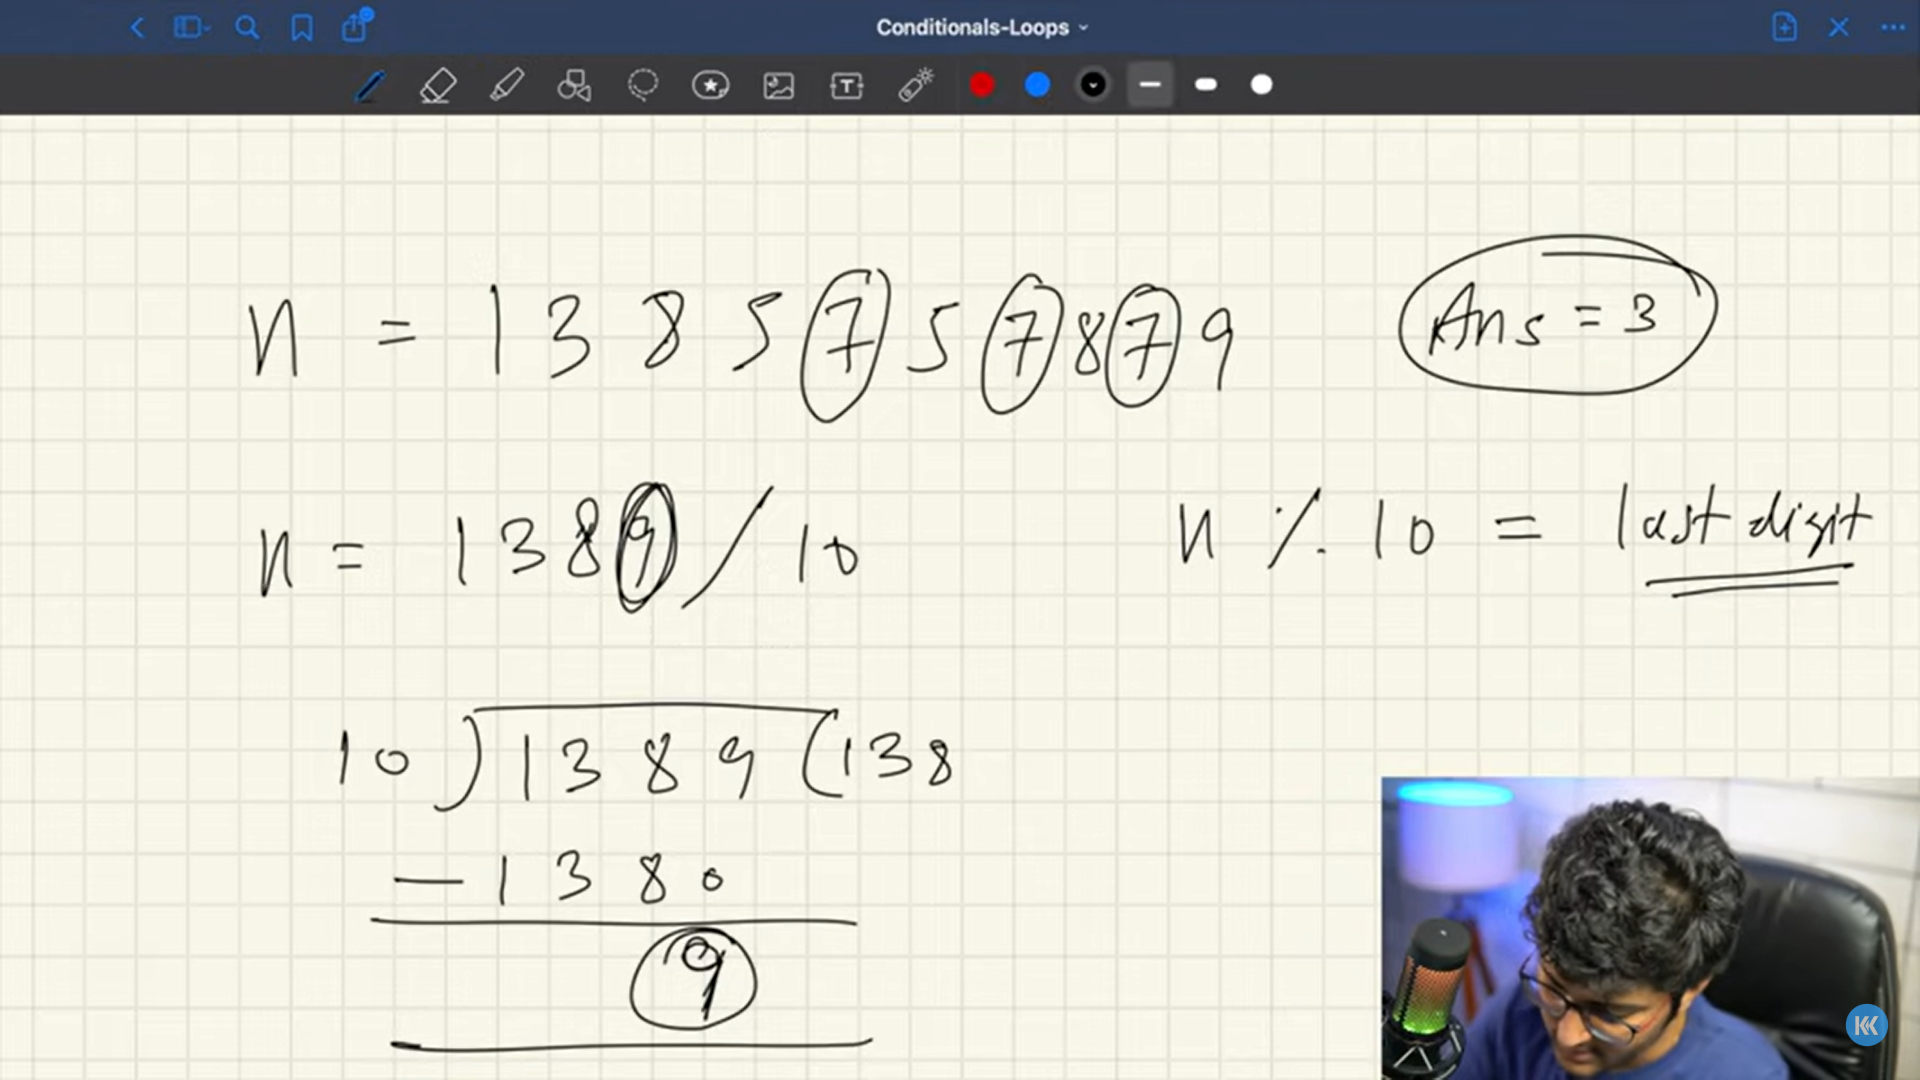 Conditionals-Loops
n = 1385757879
Ans = 3
n = 1389 / 10
n % 10 = last digit
10 ) 1389 ( 138
— 1380
9